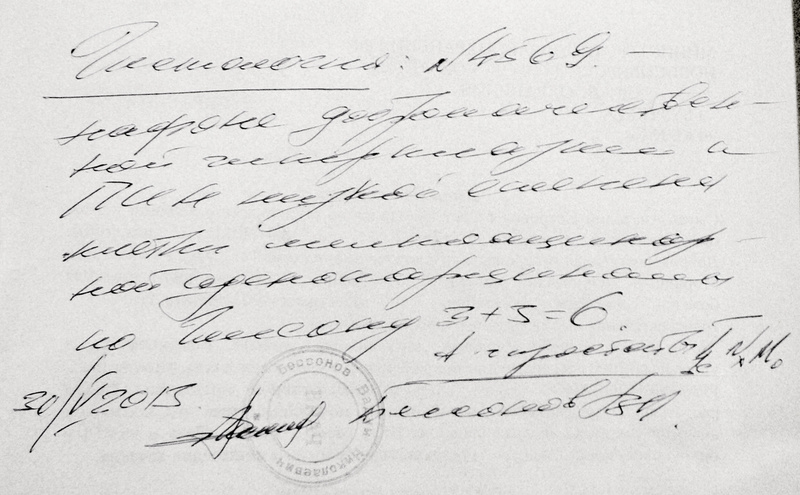 Гистология: N4569. —
на фоне доброкачествен-
ной гиперплазии и
ПИН низкой степени
клетки мелкоацинар-
ной аденокарциномы
по Глисону 3+3=6.
простаты T1c Nx M0
30/V 2013. Бессонов ВН.
Бессонов Вадим Николаевич